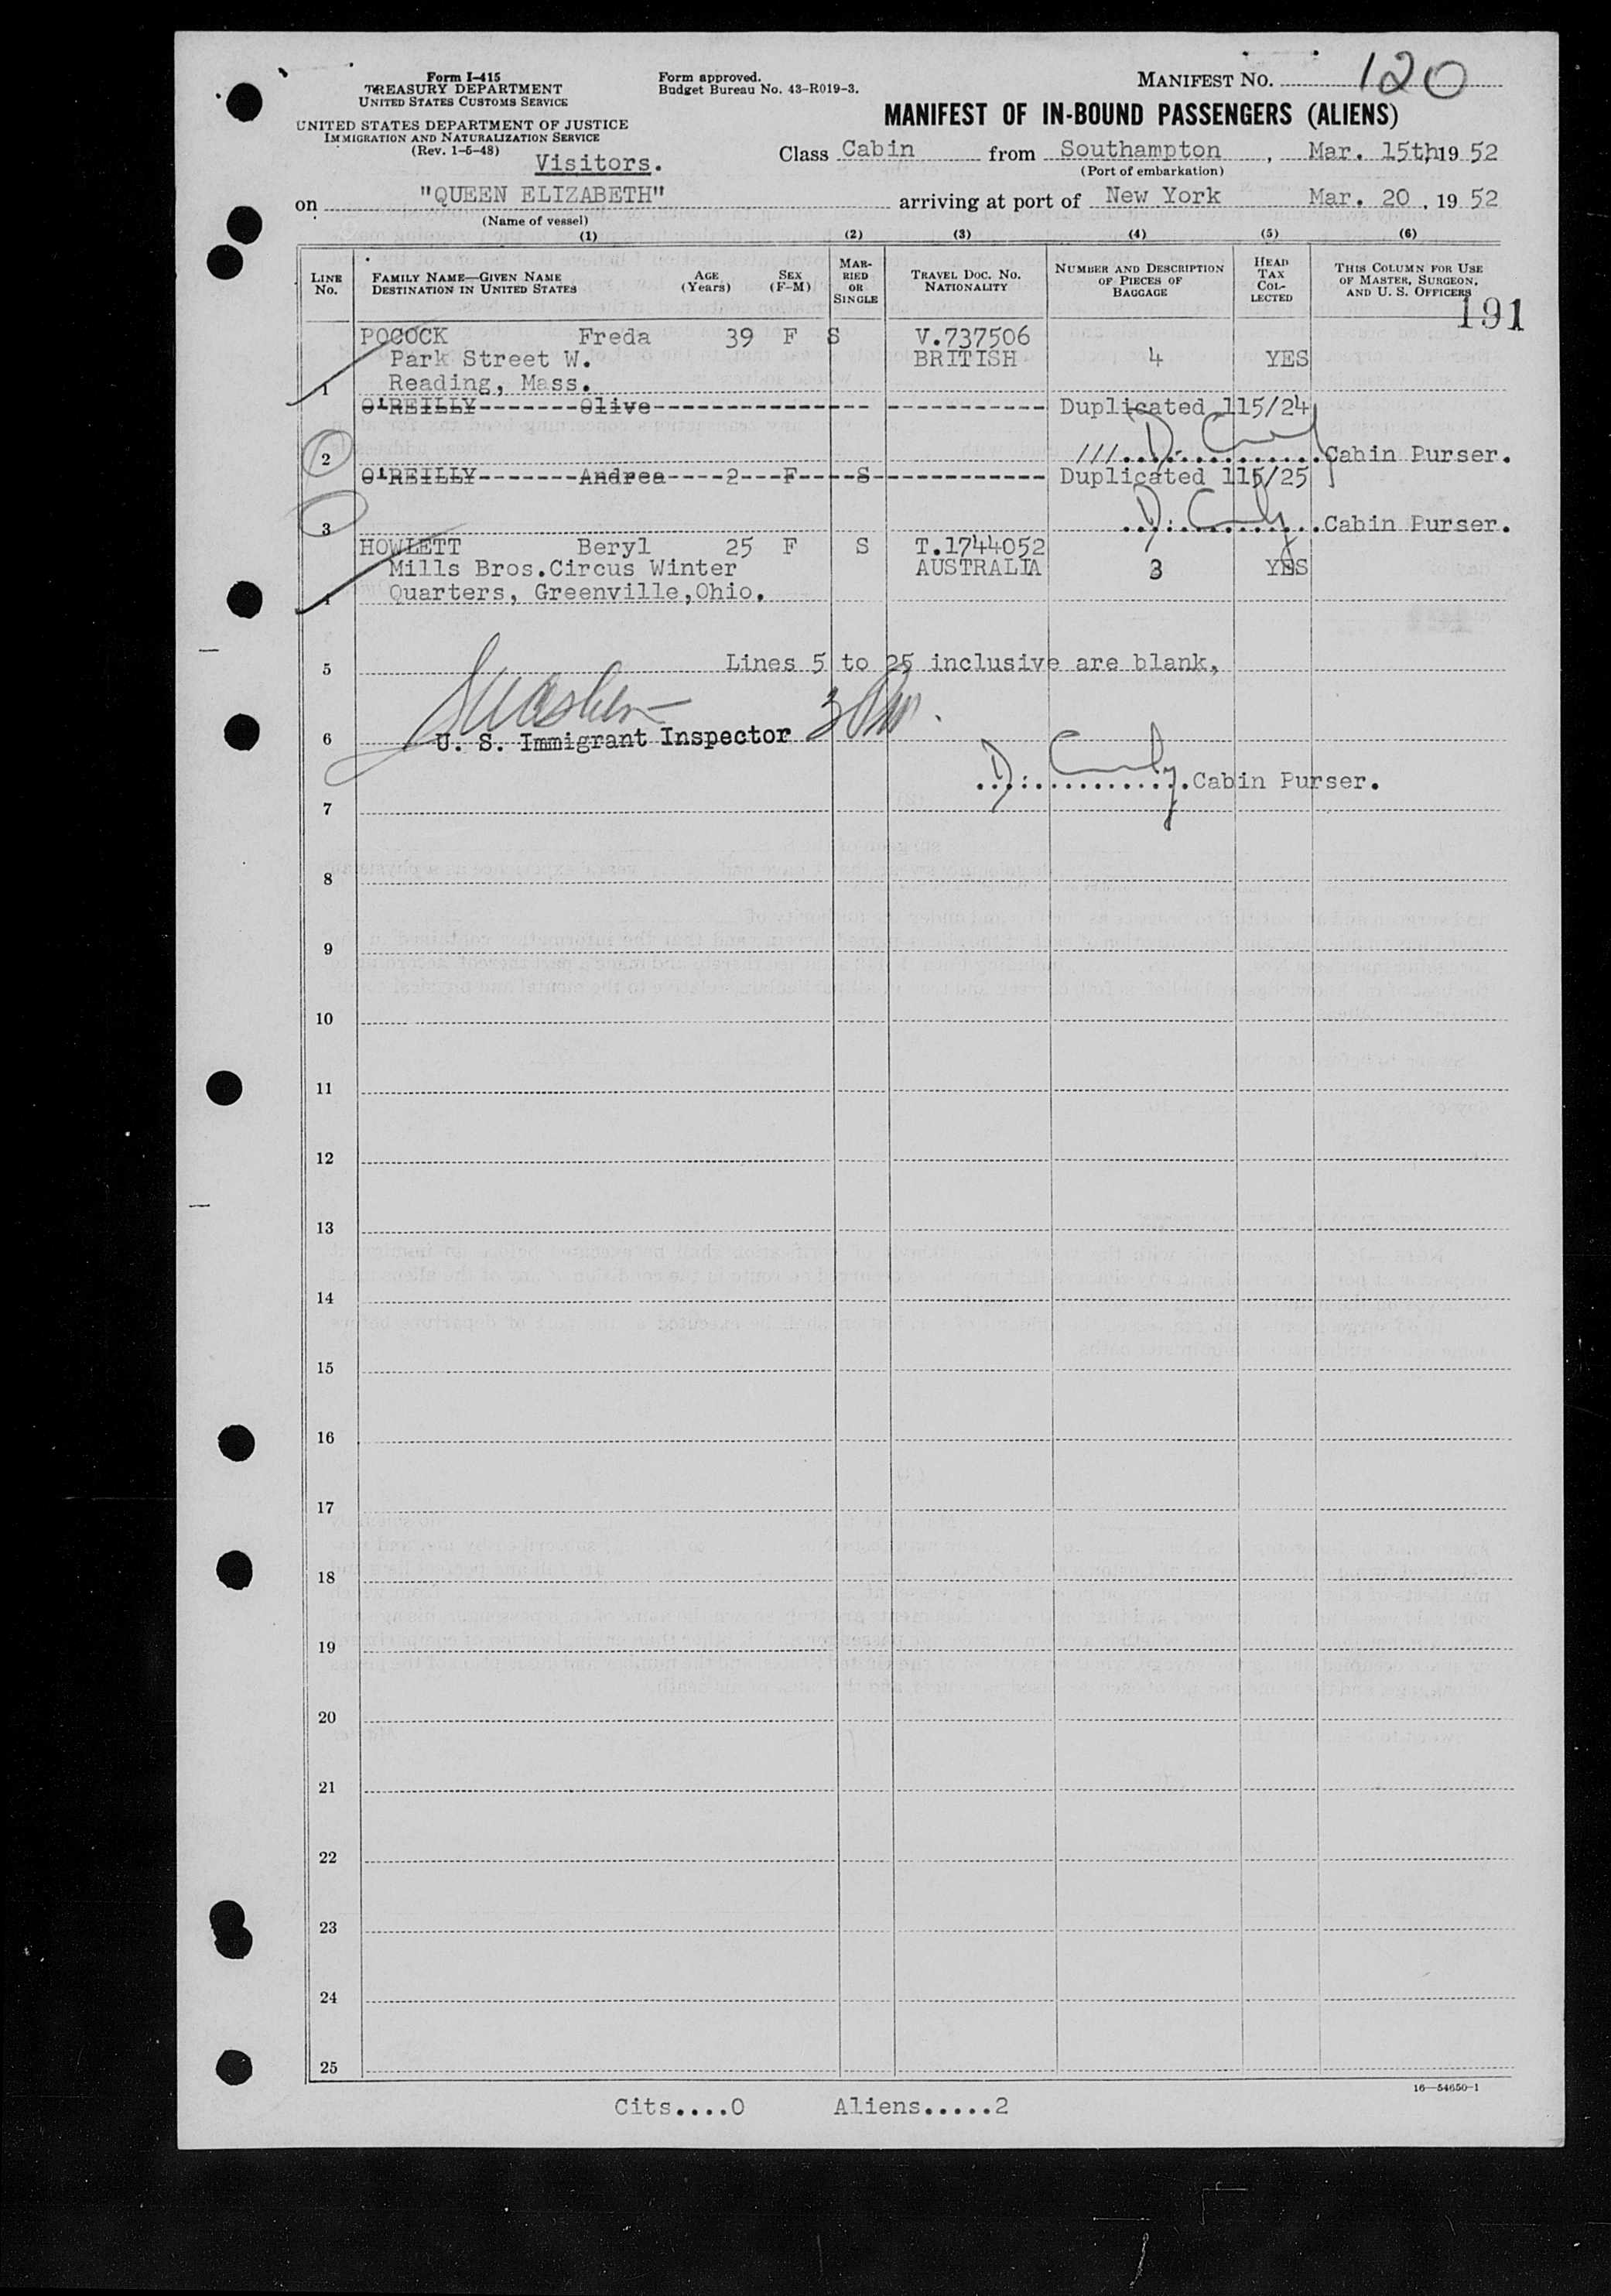 Form I-415
TREASURY DEPARTMENT
UNITED STATES CUSTOMS SERVICE
UNITED STATES DEPARTMENT OF JUSTICE
IMMIGRATION AND NATURALIZATION SERVICE
(Rev. 1-5-48)
Form approved.
Budget Bureau No. 43-R019-3.
MANIFEST NO. 120
MANIFEST OF IN-BOUND PASSENGERS (ALIENS)
Visitors.
Class Cabin from Southampton, Mar. 15th, 19 52
(Port of embarkation)
on "QUEEN ELIZABETH" arriving at port of New York Mar. 20, 19 52
(Name of vessel)
(1) (2) (3) (4) (5) (6)
LINE No.
FAMILY NAME—GIVEN NAME
DESTINATION IN UNITED STATES
AGE (Years)
SEX (F-M)
MARRIED OR SINGLE
TRAVEL DOC. NO. NATIONALITY
NUMBER AND DESCRIPTION OF PIECES OF BAGGAGE
HEAD TAX COLLECTED
THIS COLUMN FOR USE OF MASTER, SURGEON, AND U. S. OFFICERS
191
POCOCK Freda 39 F S V.737506
Park Street W. BRITISH 4 YES
1 Reading, Mass.
O'REILLY-------Olive--------------- ----------- Duplicated 115/24
2 ///..............Cabin Purser.
O'REILLY-------Andrea----2---F----S----------- Duplicated 115/25
3 ..............Cabin Purser.
HOWLETT Beryl 25 F S T.1744052
Mills Bros.Circus Winter AUSTRALIA 3 YES
4 Quarters, Greenville,Ohio.
5 Lines 5 to 25 inclusive are blank,
6 U. S. Immigrant Inspector
...............Cabin Purser.
7
8
9
10
11
12
13
14
15
16
17
18
19
20
21
22
23
24
25
16—54650-1
Cits....0 Aliens.....2